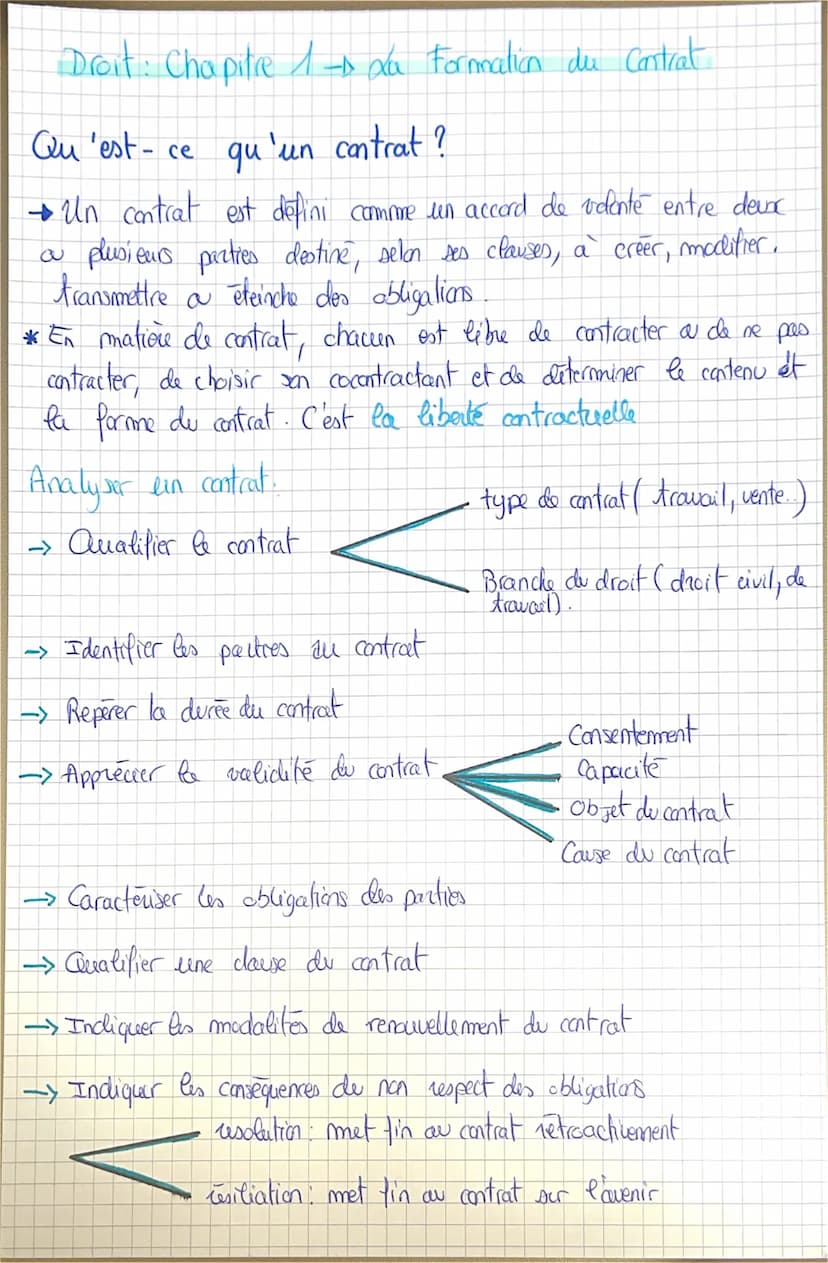 Droit : Chapitre 1 → La Formation du Contrat
Qu'est-ce qu'un contrat ?
→ Un contrat est défini comme un accord de volonté entre deux
ou plusieurs parties destiné, selon ses clauses, à créer, modifier,
transmettre ou éteindre des obligations.
* En matière de contrat, chacun est libre de contracter ou de ne pas
contracter, de choisir son cocontractant et de déterminer le contenu et
la forme du contrat. C'est la liberté contractuelle
Analyser un contrat.
type de contrat (travail, vente..)
→ Qualifier le contrat
Branche du droit (droit civil, de
travail).
→ Identifier les parties du contrat
→ Repérer la durée du contrat
Consentement
→ Apprécier la validité du contrat
Capacité
Objet du contrat
Cause du contrat
→ Caractériser les obligations des parties
→ Qualifier une clause du contrat
→ Indiquer les modalités de renouvellement du contrat
→ Indiquer les conséquences du non respect des obligations
resolution : met fin au contrat rétroactivement
résiliation : met fin au contrat sur l'avenir